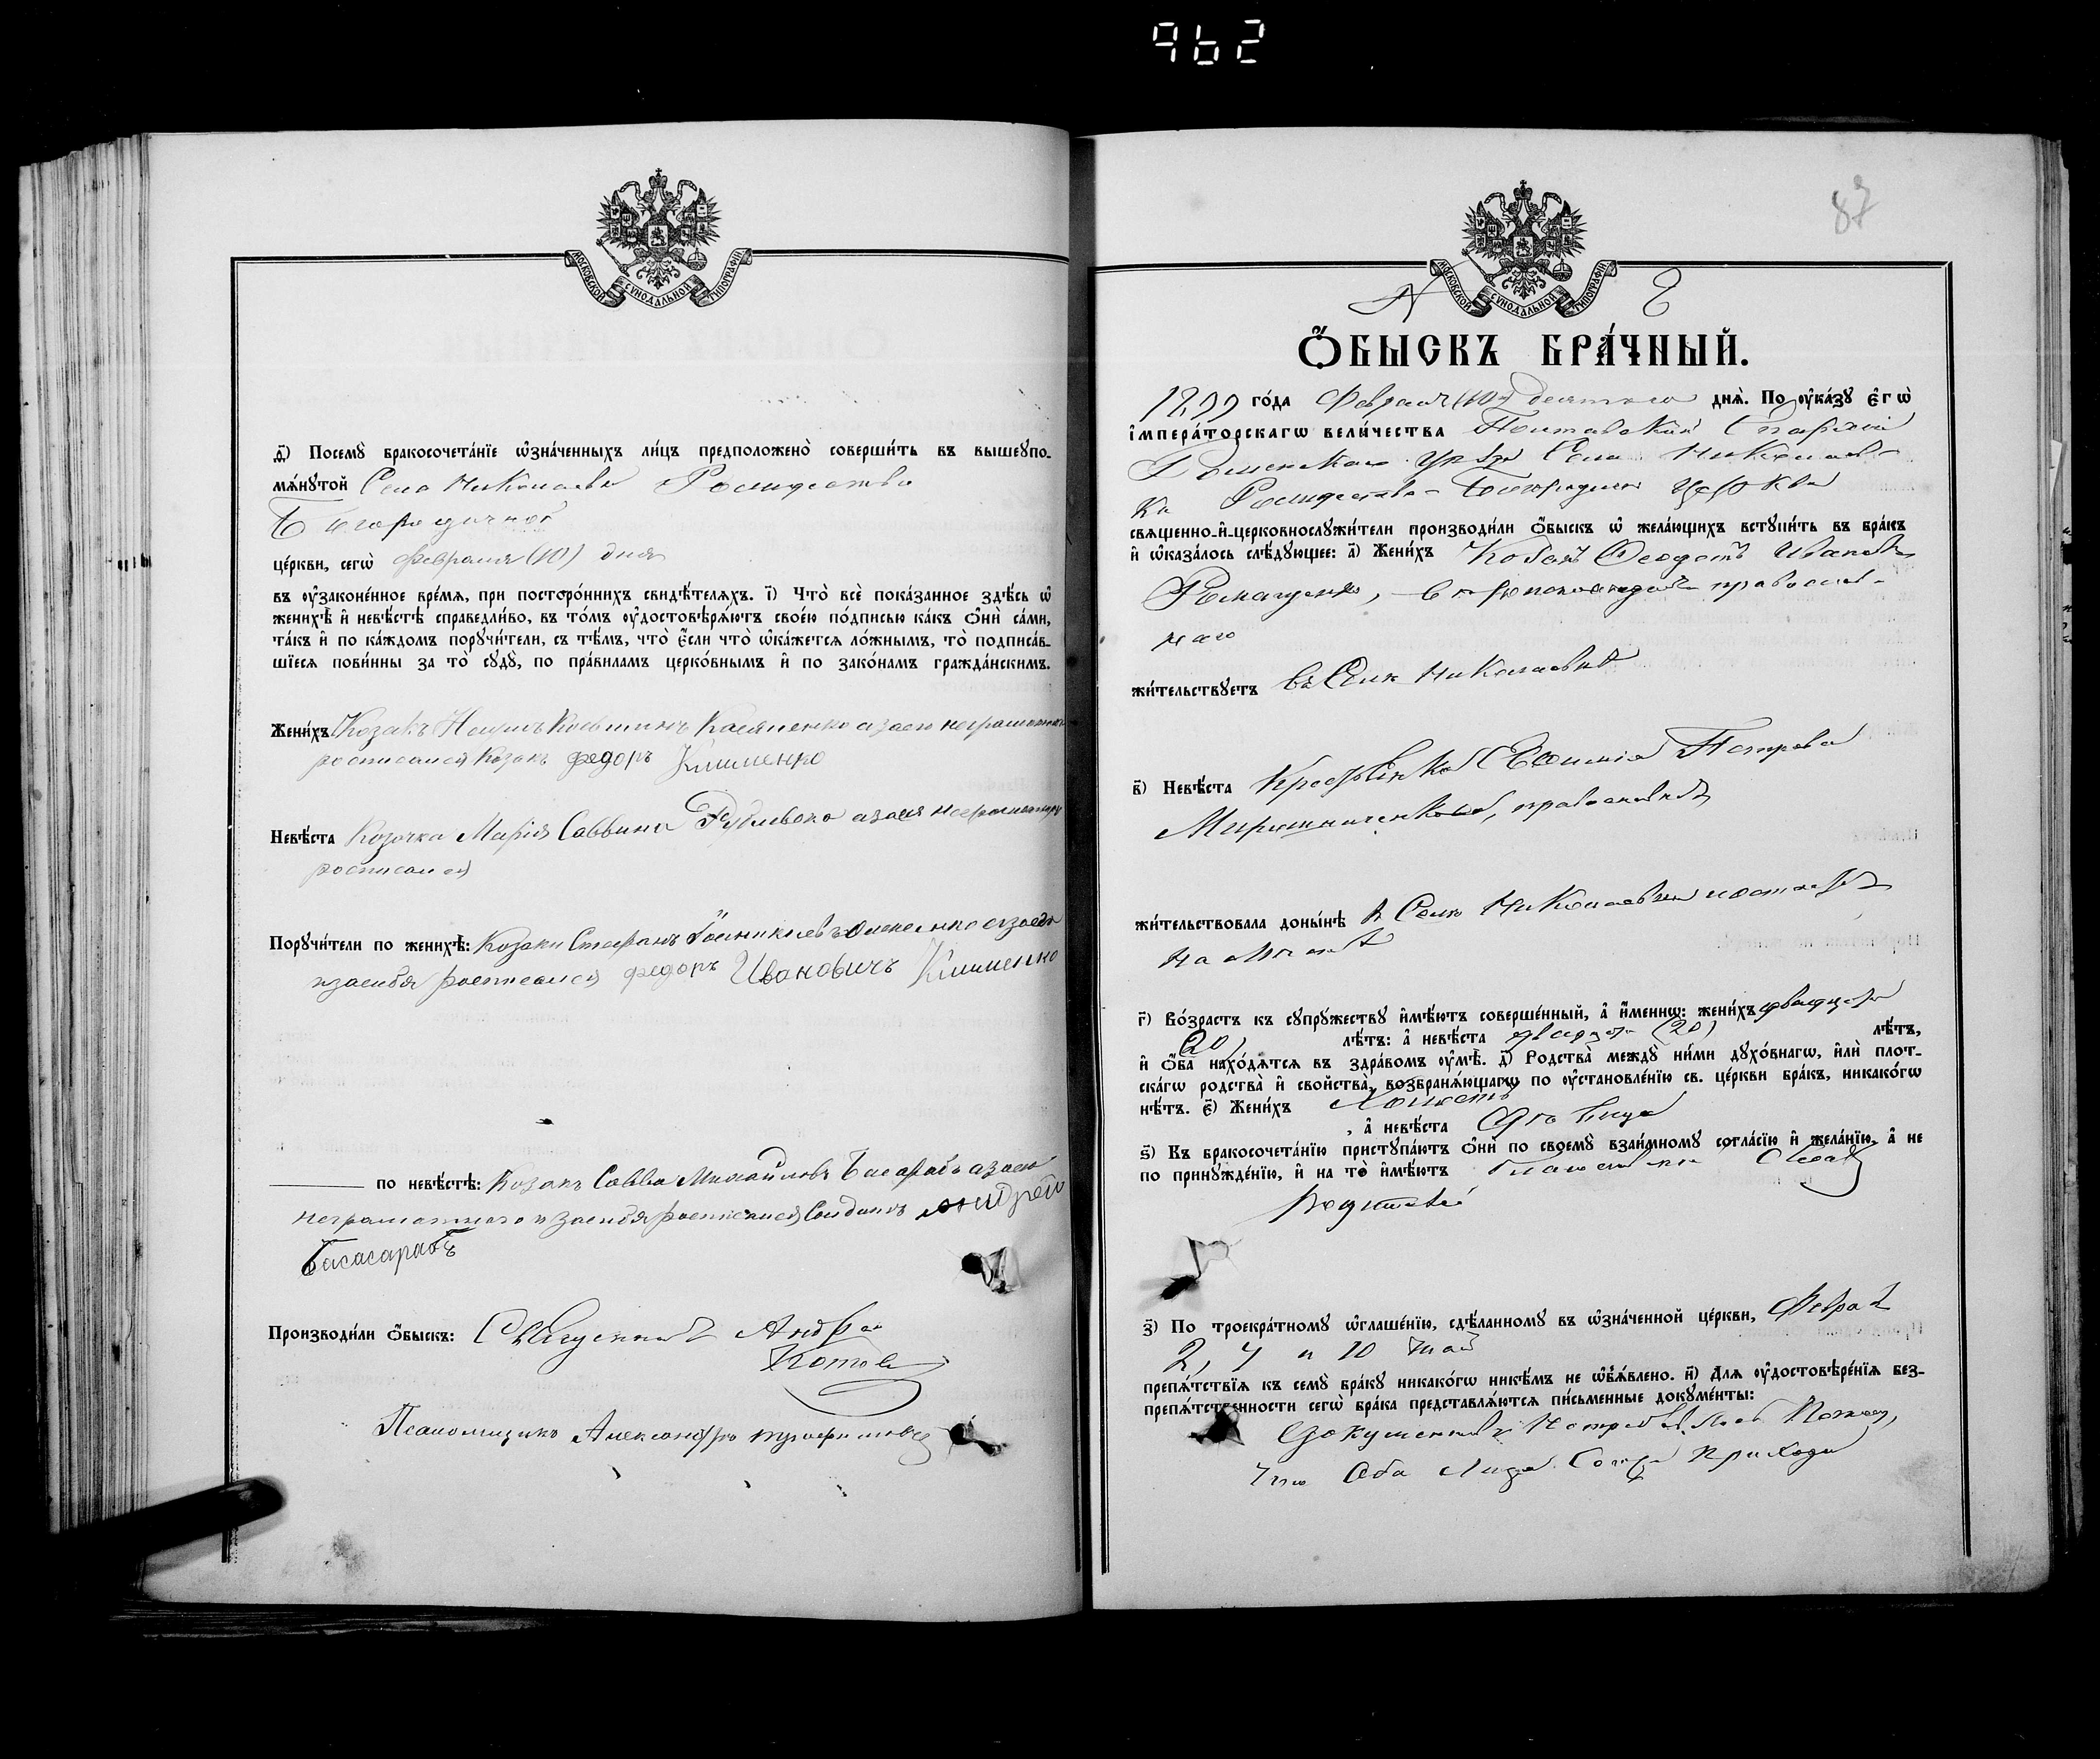 962
МОСКОВСКОЙ СѴНОДАЛЬНОЙ ТИПОГРАФІИ
д҃) Посемꙋ̀ бракосочета́нїе ѡ҆зна́ченныхъ ли́цъ предположено̀ соверши́ть въ вышеꙋпо-
мѧ́нꙋтой Села Николаевки Рождества
Богородичной
це́ркви, сегѡ̀ Февраля (10) дня
въ ᲂу҆зако́ненное вре́мѧ, при посторо́ннихъ свидѣ́телѧхъ. і҃) Что̀ всѐ пока́занное здѣ́сь ѡ҆
женихѣ̀ и҆ невѣ́стѣ справедли́во, въ то́мъ ᲂу҆достовѣрѧ́ютъ свое́ю по́дписью ка́къ Ѻ҆нѝ са́ми,
та́къ и҆ по ка́ждомъ порꙋчи́тели, съ тѣ́мъ, что̀ є҆́сли что̀ ѡ҆ка́жетсѧ ло́жнымъ, то̀ подписа́в-
шїесѧ пови́нны за то̀ сꙋдꙋ̀, по пра́виламъ церко́внымъ и҆ по зако́намъ гражда́нскимъ.
Жени́хъ Козакъ Наумъ Касяненко а за его неграмотнаго
росписался Козакъ Федоръ Клименко
Невѣ́ста Козачка Марія Саввина а за ея неграмотную
росписался
Порꙋчи́тели по женихѣ̀: Козаки Стефанъ
и за себя росписался Федоръ Ивановичъ Клименко
по невѣ́стѣ: Козакъ Савва Михайловъ Басарабъ а за его
неграмотнаго и за себя росписался Андрей
Басасарабъ
Производи́ли Ѻ҆́быскъ: Священникъ Андрей
Котов
Псаломщикъ Александръ
87
МОСКОВСКОЙ СѴНОДАЛЬНОЙ ТИПОГРАФІИ
Ѻ҆́БЫСКЪ БРА́ЧНЫЙ.
1899 го́да Февраля (10) десятого днѧ̀. По ᲂу҆ка́зꙋ Є҆гѡ̀
І҆мпера́торскагѡ вели́чества Полтавской Епархіи
Роменскаго Уѣзда Села Николаев-
ки Рождество-Богородичной Церкви
свѧщенно-и҆-церковнослꙋжи́тели производи́ли Ѻ҆́быскъ ѡ҆ жела́ющихъ встꙋпи́ть въ бра́къ
и҆ ѡ҆каза́лось слѣ́дꙋющее: а҃) Жени́хъ Козакъ Феодотъ Ивановъ
Ромащенко, православ-
наго
жи́тельствꙋетъ въ Селѣ Николаевкѣ
в҃) Невѣ́ста Крестьянка Евфимія Петрова
Мирошниченкова, православная
жи́тельствовала доны́нѣ в Селѣ Николаевки
г҃) Во́зрастъ къ сꙋпрꙋ́жествꙋ и҆мѣ́ютъ соверше́нный, а҆ и҆́меннѡ: жени́хъ двадцать
(20) лѣ́тъ: а҆ невѣ́ста двадцать (20) лѣ́тъ,
и҆ Ѻ҆́ба нахо́дѧтсѧ въ здра́вомъ ᲂу҆мѣ̀. д҃) Родства̀ междꙋ̀ ни́ми дꙋхо́внагѡ, и҆лѝ плот-
ска́гѡ родства̀ и҆ сво́йства̀, возбранѧ́ющагѡ по ᲂу҆становле́нїю св. це́ркви бра́къ, никако́гѡ
нѣ́тъ. є҃) Жени́хъ Холостъ
, а҆ невѣ́ста Дѣвица
ѕ҃) Къ бракосочета́нїю пристꙋпа́ютъ Ѻ҆нѝ по своемꙋ̀ взаи́мномꙋ согла́сїю и҆ жела́нїю, а҆ не
по принꙋжде́нїю, и҆ на то̀ и҆мѣ́ютъ
Родителей
з҃) По троекра́тномꙋ ѡ҆глаше́нїю, сдѣ́ланномꙋ въ ѡ҆зна́ченной це́ркви, Февраля
2, 7 и 10 дней
препѧ́тствїѧ къ семꙋ̀ бра́кꙋ никако́гѡ никѣ́мъ не ѡ҆б̾ѧ́влено. и҃) Длѧ ᲂу҆достовѣре́нїѧ без-
препѧ́тственности сегѡ̀ бра́ка представлѧ́ютсѧ пи́сьменные докꙋме́нты:
Документовъ
что Оба Лица Сего Прихода